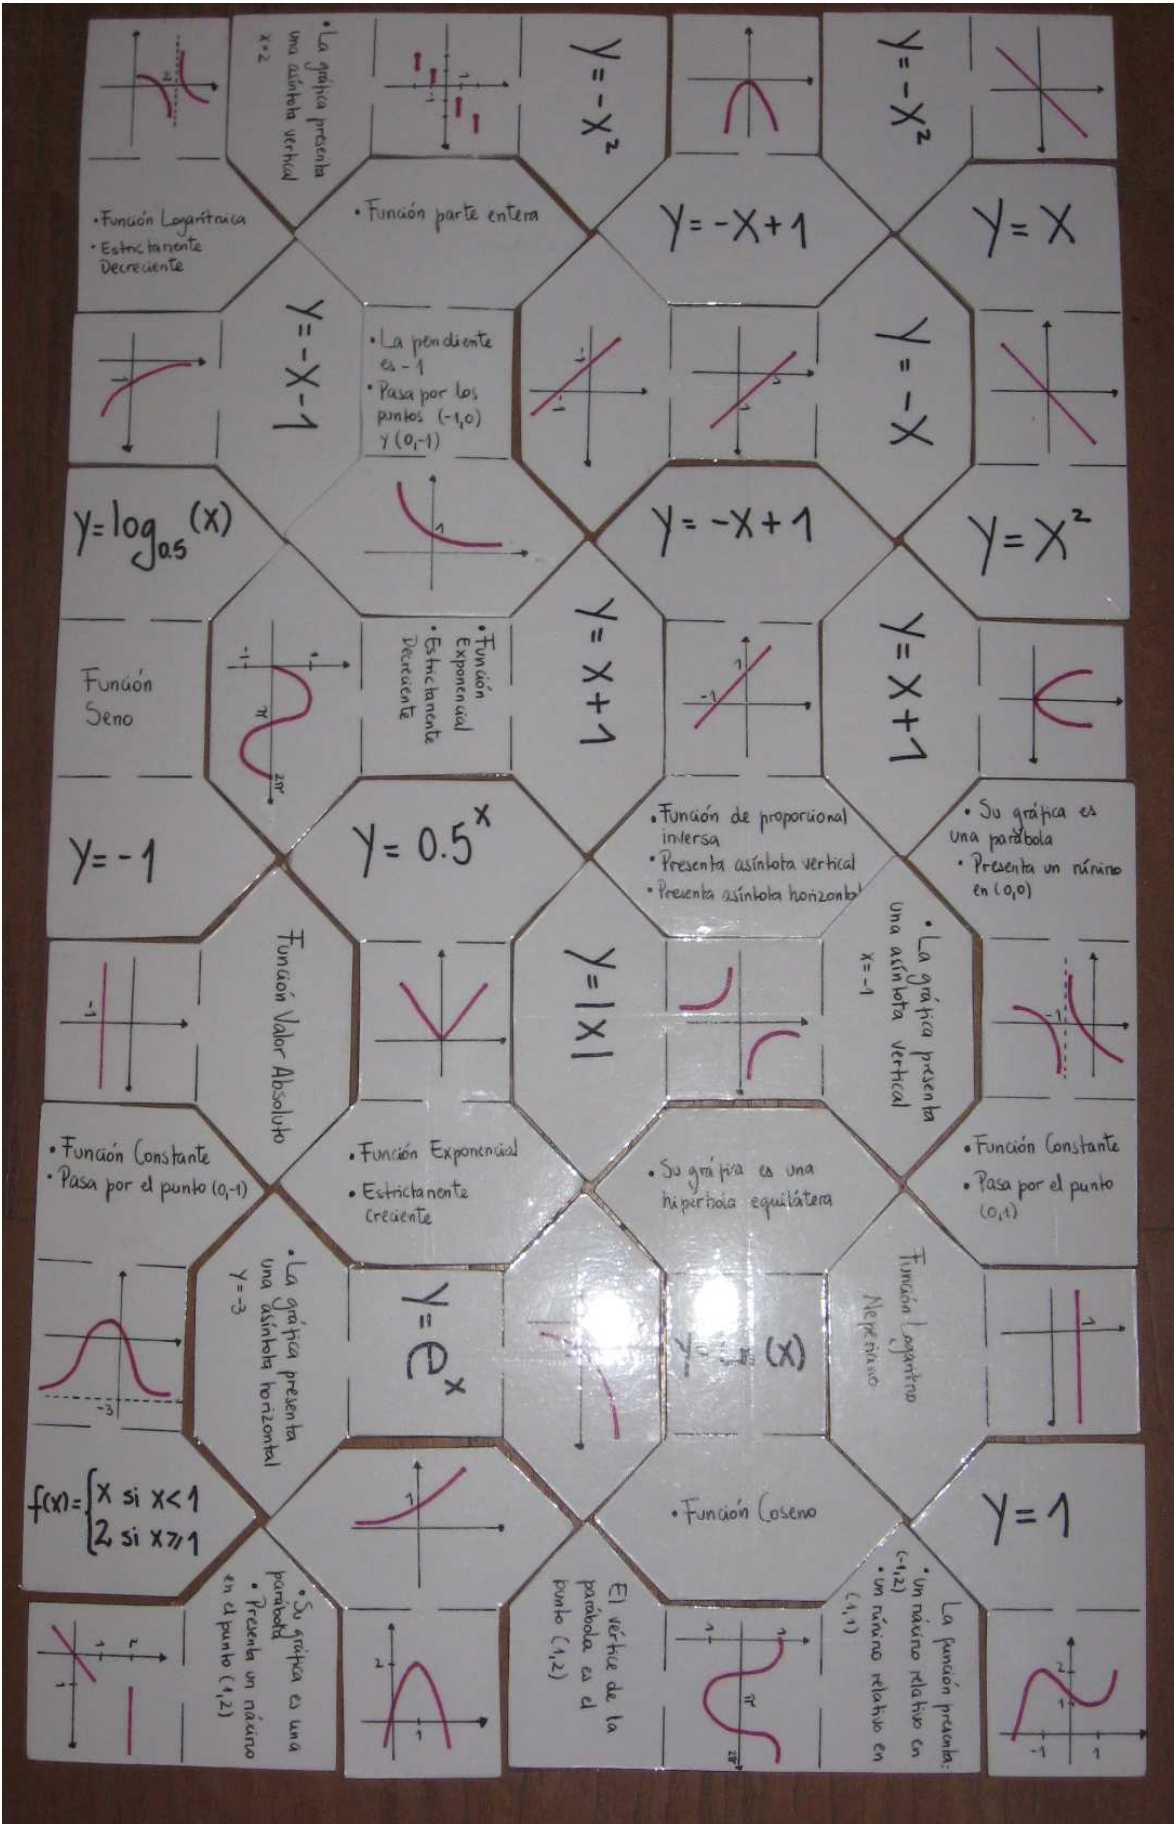 2
• La gráfica presenta
una asíntota vertical
x=2
1
-1
y = -x²
y = -x²
• Función Logarítmica
• Estrictamente
Decreciente
• Función parte entera
y = -x+1
y = x
1
y = -x-1
• La pendiente
es -1
• Pasa por los
puntos (-1,0)
y (0,-1)
-1
-1
1
1
y = -x
y=log0.5 (x)
1
y = -x+1
y = x²
Función
Seno
-1
1
π
2π
• Función
Exponencial
• Estrictamente
Decreciente
y = x+1
1
-1
y = x+1
y = -1
y = 0.5ˣ
• Función de proporcional
inversa
• Presenta asíntota vertical
• Presenta asíntota horizontal
• Su gráfica es
una parábola
• Presenta un mínimo
en (0,0)
-1
Función Valor Absoluto
y = |x|
• La gráfica presenta
una asíntota vertical
x = -1
-1
• Función Constante
• Pasa por el punto (0,-1)
• Función Exponencial
• Estrictamente
creciente
• Su gráfica es una
hipérbola equilátera
• Función Constante
• Pasa por el punto
(0,1)
-3
• La gráfica presenta
una asíntota horizontal
y = -3
y = eˣ
y (x)
Función Logaritmo
Neperiano
1
f(x)={x si x<1
2 si x≥1
1
• Función Coseno
y = 1
1
2
1
• Su gráfica es una
parábola
• Presenta un máximo
en el punto (1,2)
2
1
El vértice de la
parábola es el
punto (1,2)
-1
1
π
2π
La función presenta:
• un máximo relativo en
(-1,2)
• un mínimo relativo en
(1,1)
2
1
-1
1